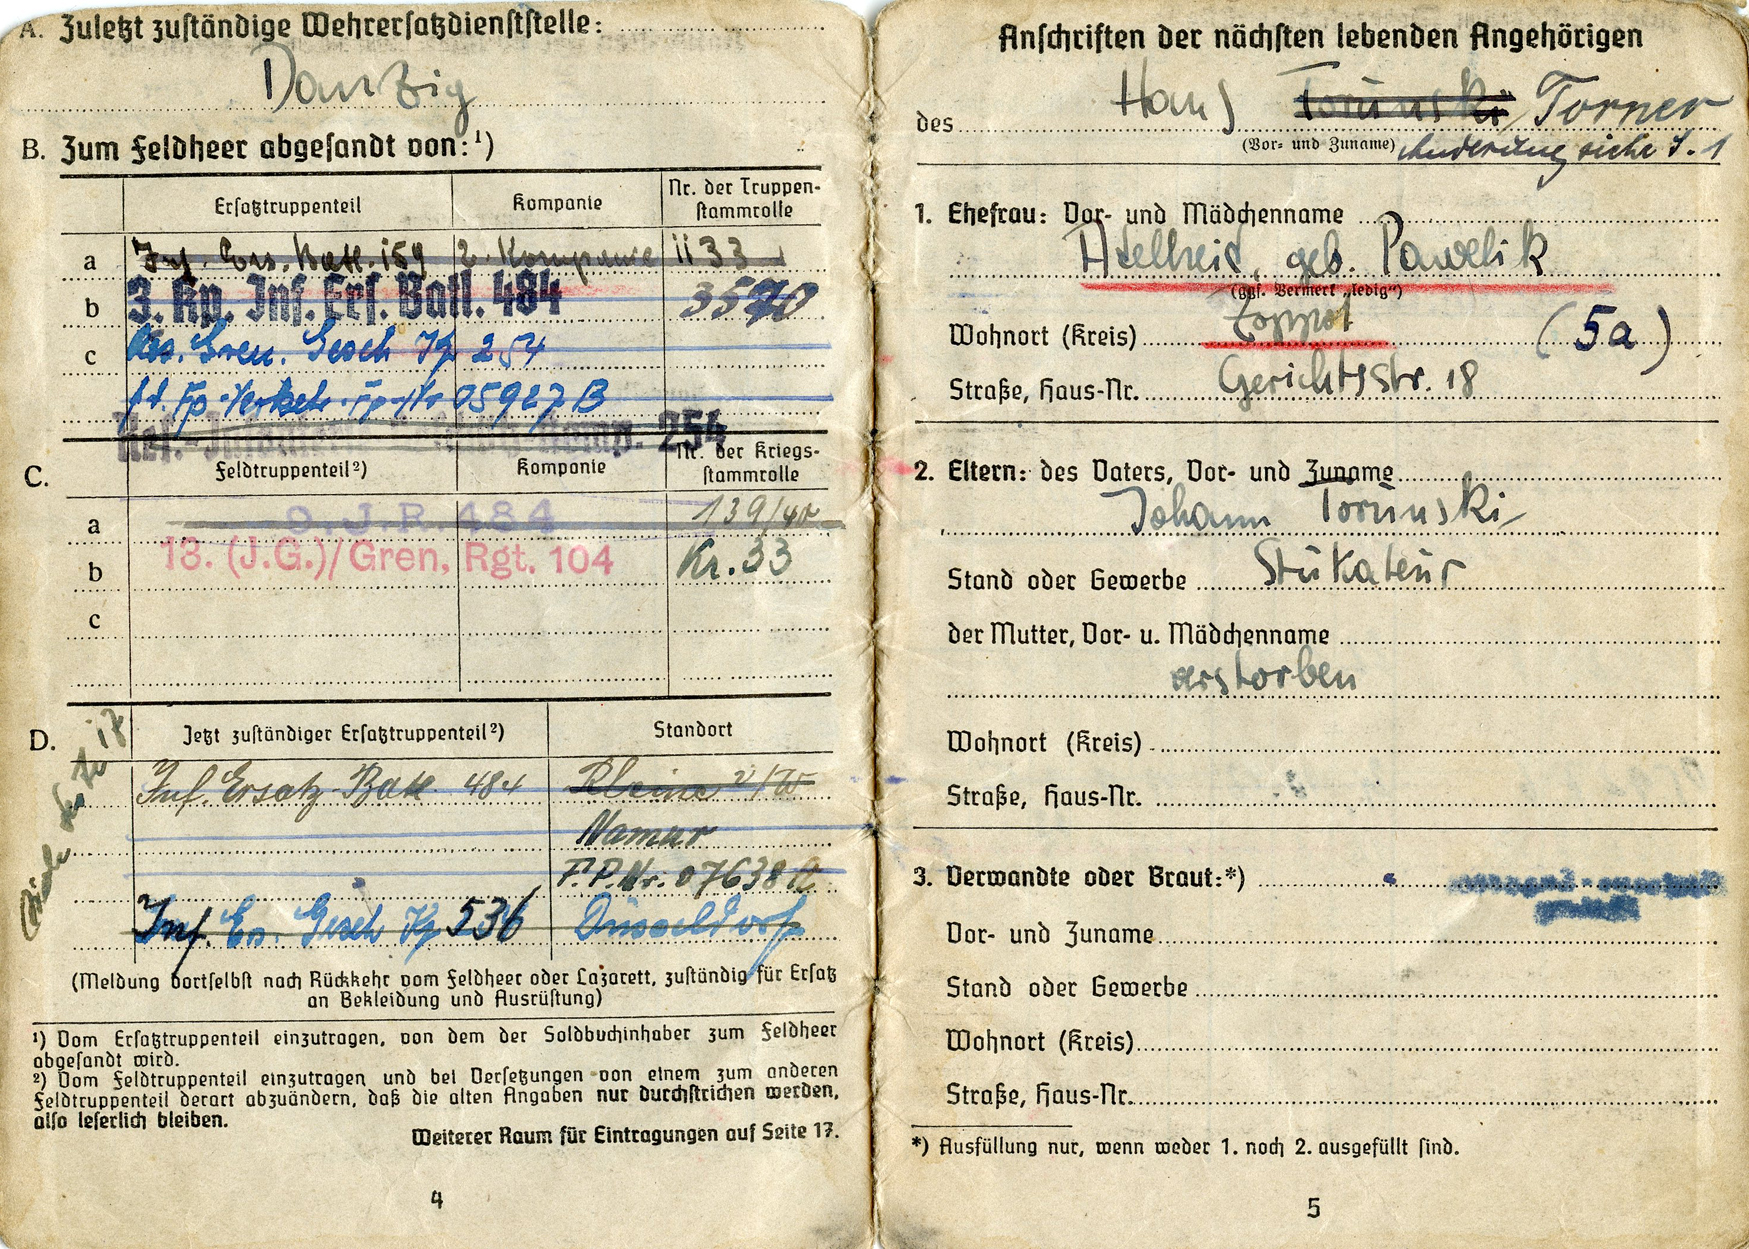 A. Zuletzt zuständige Wehrersatzdienststelle:
Danzig
B. Zum Feldheer abgesandt von:¹)
Ersatztruppenteil
Kompanie
Nr. der Truppen-
stammrolle
a Inf. Ers. Batl. 159 2. Kompanie 1133
b 3. Kp. Inf. Ers. Batl. 484
c Gren. Gesch Kp 254
05927 B
254
C.
Feldtruppenteil²)
Kompanie
Nr. der Kriegs-
stammrolle
a D.J.R. 484 139/40
b 13. (J.G.)/Gren. Rgt. 104 Kr. 33
c
D.
Jetzt zuständiger Ersatztruppenteil²)
Standort
Inf. Ersatz Batl. 484
Namur
F.P.Nr. 07638
Inf. Ers. Gesch Kp 536 Düsseldorf
Seite 17
(Meldung dortselbst nach Rückkehr vom Feldheer oder Lazarett, zuständig für Ersatz
an Bekleidung und Ausrüstung)
¹) Vom Ersatztruppenteil einzutragen, von dem der Soldbuchinhaber zum Feldheer
abgesandt wird.
²) Vom Feldtruppenteil einzutragen und bei Versetzungen von einem zum anderen
Feldtruppenteil derart abzuändern, daß die alten Angaben nur durchstrichen werden,
also leserlich bleiben.
Weiterer Raum für Eintragungen auf Seite 17.
4
Anschriften der nächsten lebenden Angehörigen
des Hans Torunski / Torner
(Vor- und Zuname) Änderung siehe S. 1
1. Ehefrau: Vor- und Mädchenname
Adelheid, geb. Pawelik
(ggf. Vermerk „ledig")
Wohnort (Kreis) Zoppot (5a)
Straße, Haus-Nr. Gerichtsstr. 18
2. Eltern: des Vaters, Vor- und Zuname
Johann Torunski
Stand oder Gewerbe Stukateur
der Mutter, Vor- u. Mädchenname
verstorben
Wohnort (Kreis)
Straße, Haus-Nr.
3. Verwandte oder Braut:*)
Vor- und Zuname
Stand oder Gewerbe
Wohnort (Kreis)
Straße, Haus-Nr.
*) Ausfüllung nur, wenn weder 1. noch 2. ausgefüllt sind.
5